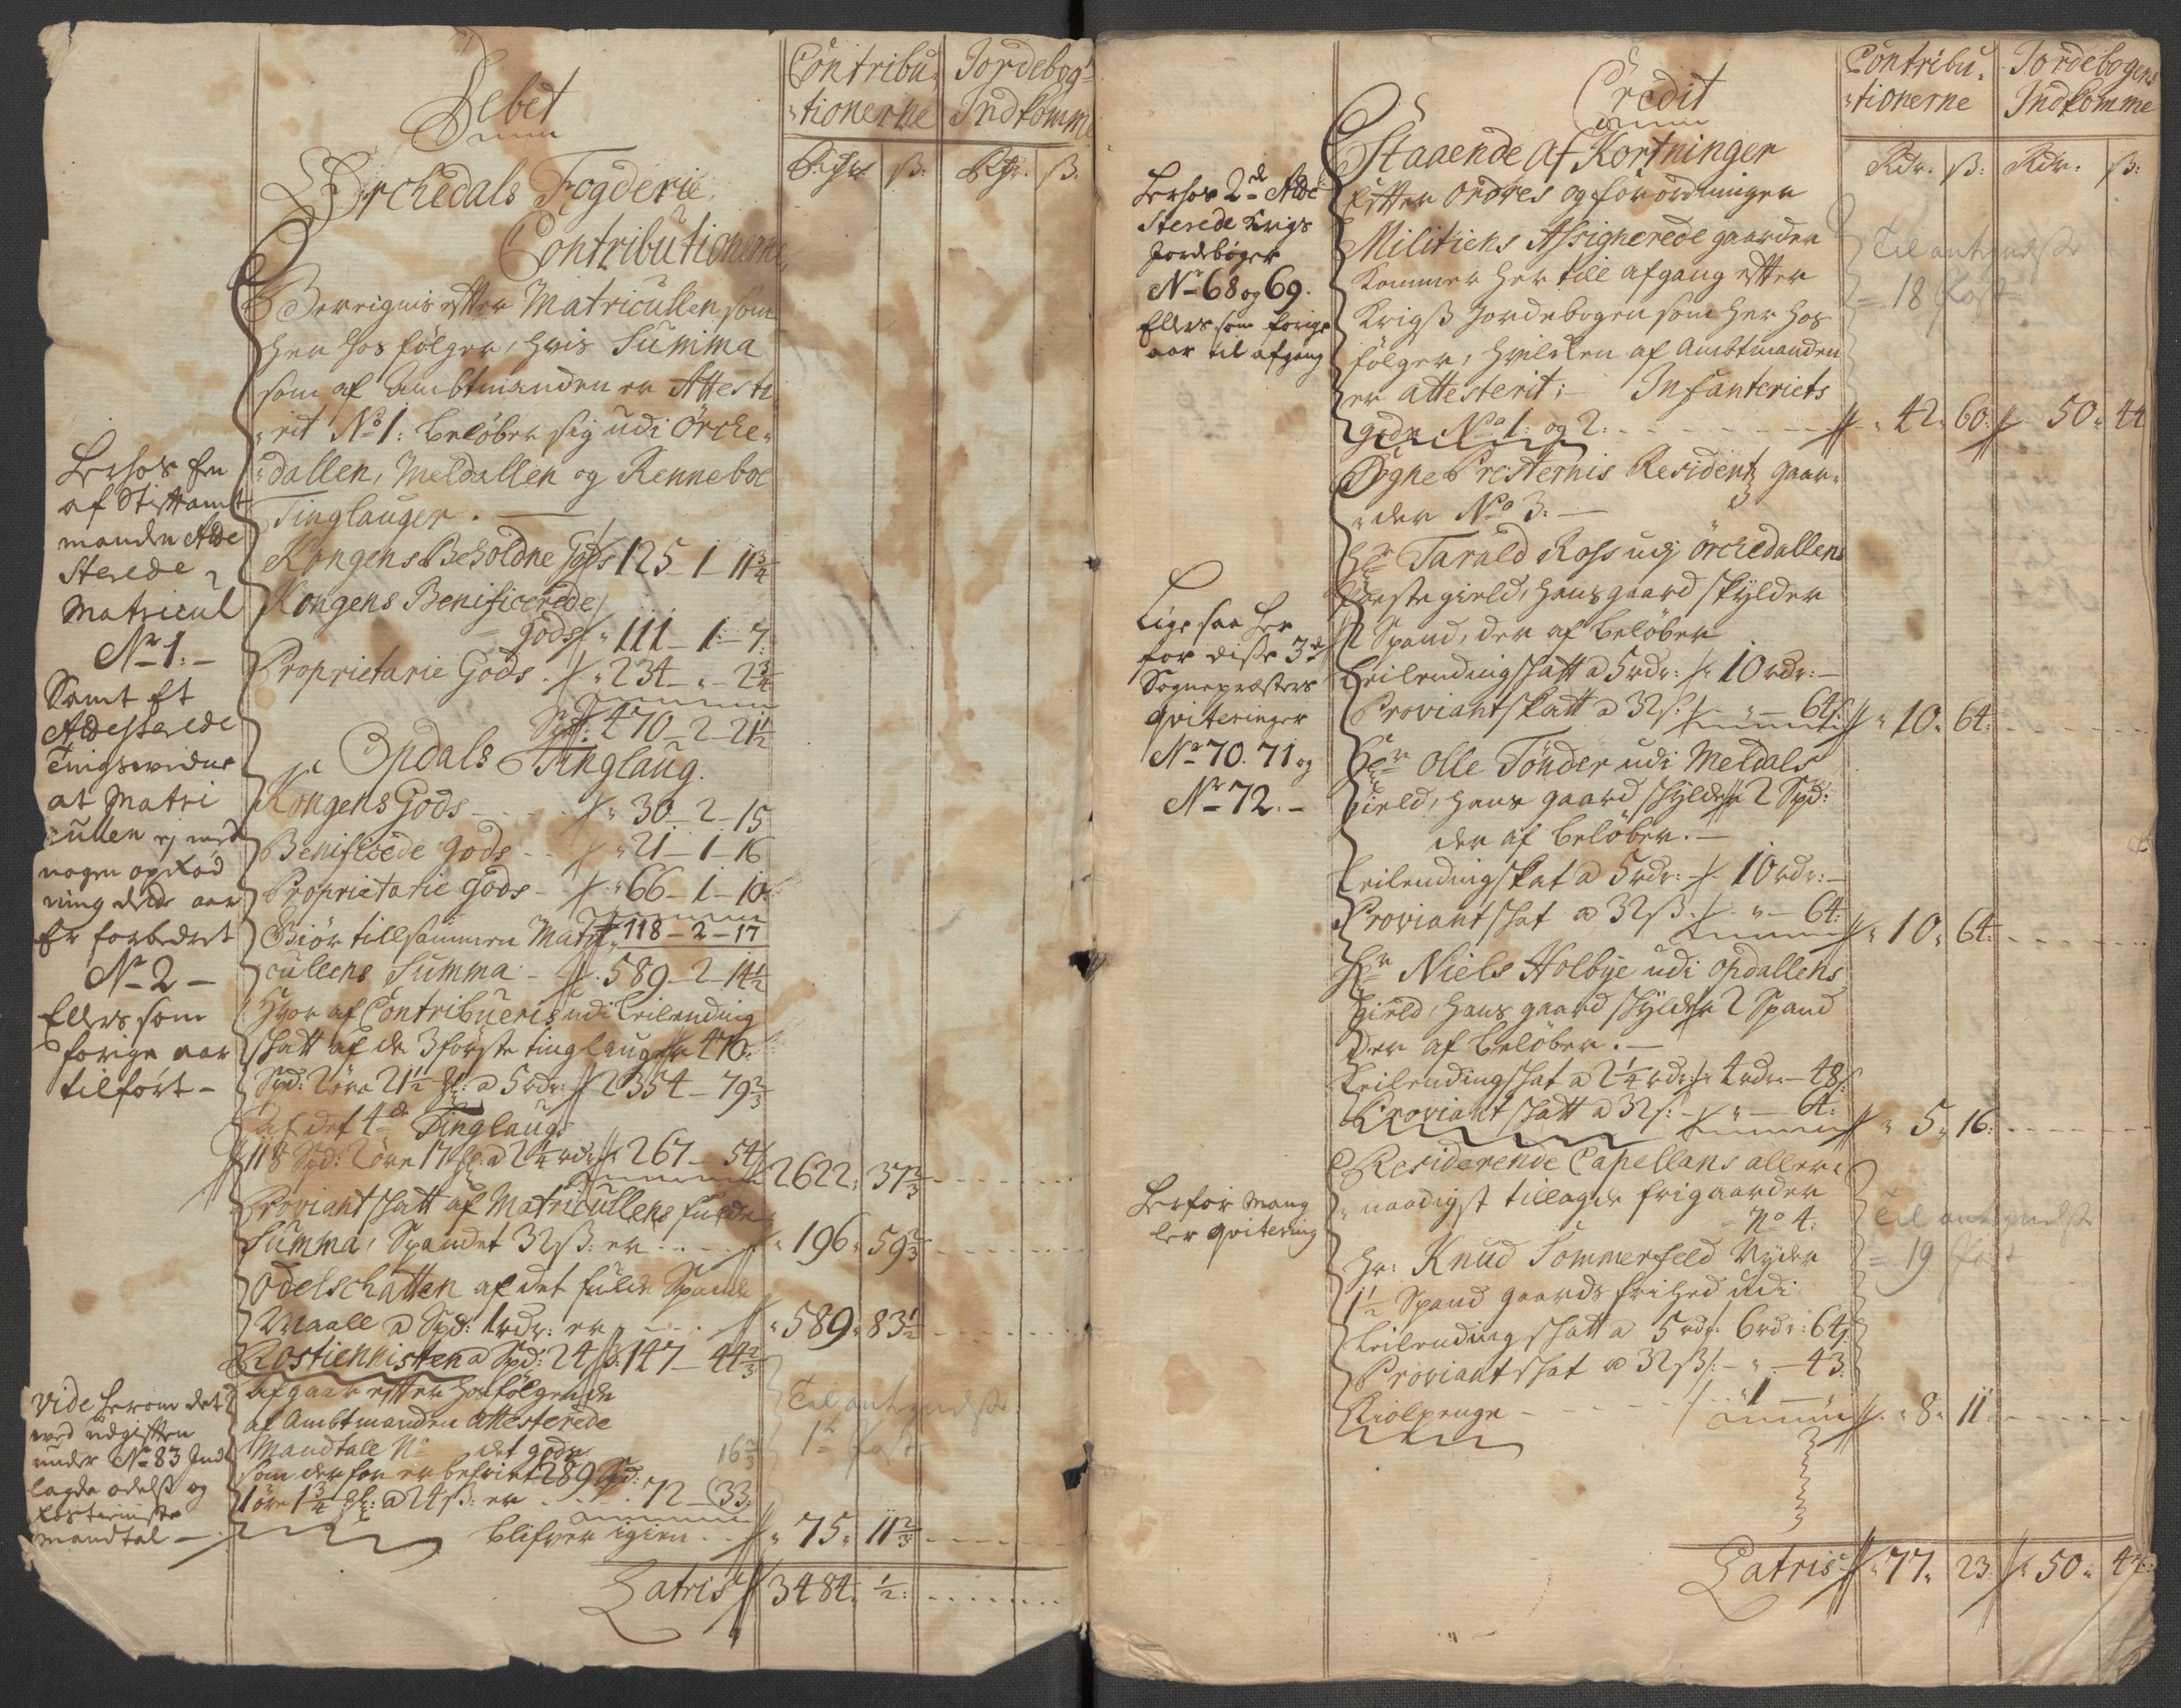 Debet
Contribu-
tionerne
Jordebog
Indkomme
Rdr. ß: Rdr. ß.
Orchedals Fogderie
Contributionerne
Bereignis efter Matricullen som
her hos følger, hvis Summa
som af Ambtmanden er Atteste
rit No 1: beløber sig udi Örche-
dallen, Meldallen og Renneboe
Tinglauger.
Kongens Beholdne Gods 125 - 1 - 11 3/4
Kongens Benificerede
Gods 111 - 1 - 7
Proprietarie Gods 234 - " - 2 3/4
Spd: 470 - 2 - 21 1/2
Opdals Tinglaug.
Kongens Gods 30 - 2 - 15
Benificede Gods 21 - 1 - 16
Proprietarie Gods 66 - 1 - 10
118 - 2 - 17
Giør tillsammen Matri
cullens Summa 589 - 2 - 14 1/2
Hvor af Contribueris udi Leilending
skatt af de 3 første tinglauger 470
Spd: 2 øre 21 1/2 a 5 rdr: 2354 - 79 2/3
af det 4de Tinglaug
118 Spd: 2 øre 17 a 2 1/4 rdr 267 - 54 2622: 37 2/3
Proviant skatt af Matricullens fulde
Summa, Spandet 32 ß: er 196. 59 2/3
Odelschatten af det fulde Spande
Maall a Spd: 1 rdr: er 589. 83 1/2
Rostiennisten a Spd: 24 ß: 147 - 44 2/3
afgaar efter hosfølgende
af Ambtmanden attesterede
Mandtale No det gods
som der for er befriet 289 Spd:
1 øre 1 3/4 a 24 ß: er 72 - 33
16 2/3
Til antegnelse
1te Post
blifver igien 75. 11 2/3
Latris 3484. 1/2
Herhos En
af Stiftamt
manden Atte
sterede
Matricul
No 1:
Samt Et
Attesterede
Tingsvidne
at Matri
cullen ej med
nogen opryd
ning dette aar
Er forbedret
No 2
Ellers som
forige aar
tilført
Vide herom det
ved udgiften
under No 83 Ind
lagde odels og
Rostieniste
mandtal
Credit
Contribu-
tionerne
Jordebogens
Indkomme
Rdr. ß: Rdr. ß:
Staaende Af Kortninger
Efter Ordres og forordninger
Militiens Assignerede gaarder
kommer her till afgang efter
Krigs Jordebogen som her hos
følger, hvilken af Ambtmanden
er attesterit; Infanteriets
gods No 1: og 2: 42. 60: 50. 44
Sogne Presternis Residentz gaar-
der No 3.
Hr Tarald Ross udj Örchedallens
Prestegield, hans gaard skylder
2 Spand, der af beløber
Leilendingskatt a 5 rdr: 10 rdr:
Proviantskatt a 32 ß " - 64 ß 10. 64:
Hr Olle Tönder udi Meldals
gield, hans gaard skylder 2 Spd:
der af beløber.
Leilendingskat a 5 rdr: 10 rdr:
Proviantskat a 32 ß " - 64: 10. 64:
Hr Niels Holbye udi Opdallens
gield, hans gaard skylder 2 Spand
der af beløber.
Leilendingskat a 2 1/4 rdr: 4 rdr - 48 ß
Proviantskatt a 32 ß: " - 64: 5. 16:
Residerende Capellans aller-
naadigst tillagde frigaarder
No 4:
Hr: Knud Sommerfeld Nyder
1 1/2 Spand gaards frihed udi
Leilendingskatt a 5 rdr. 6 rdr: 64 ß
Proviantskat a 32 ß: " - 43:
Kiolpenge 1 - " 8. 11:
Latris 77. 23: 50. 44:
Herhos 2de Atte
sterede Krigs
Jordebøger
No 68 og 69.
Ellers som forige
aar til afgang
Lige saa her
for disse 3de
Sognepræsters
qviteringer
No 70. 71 og
No 72.
Herfor mang
ler qvitering
Til antegnelse
18 Post
Til antegnelse
19 Post